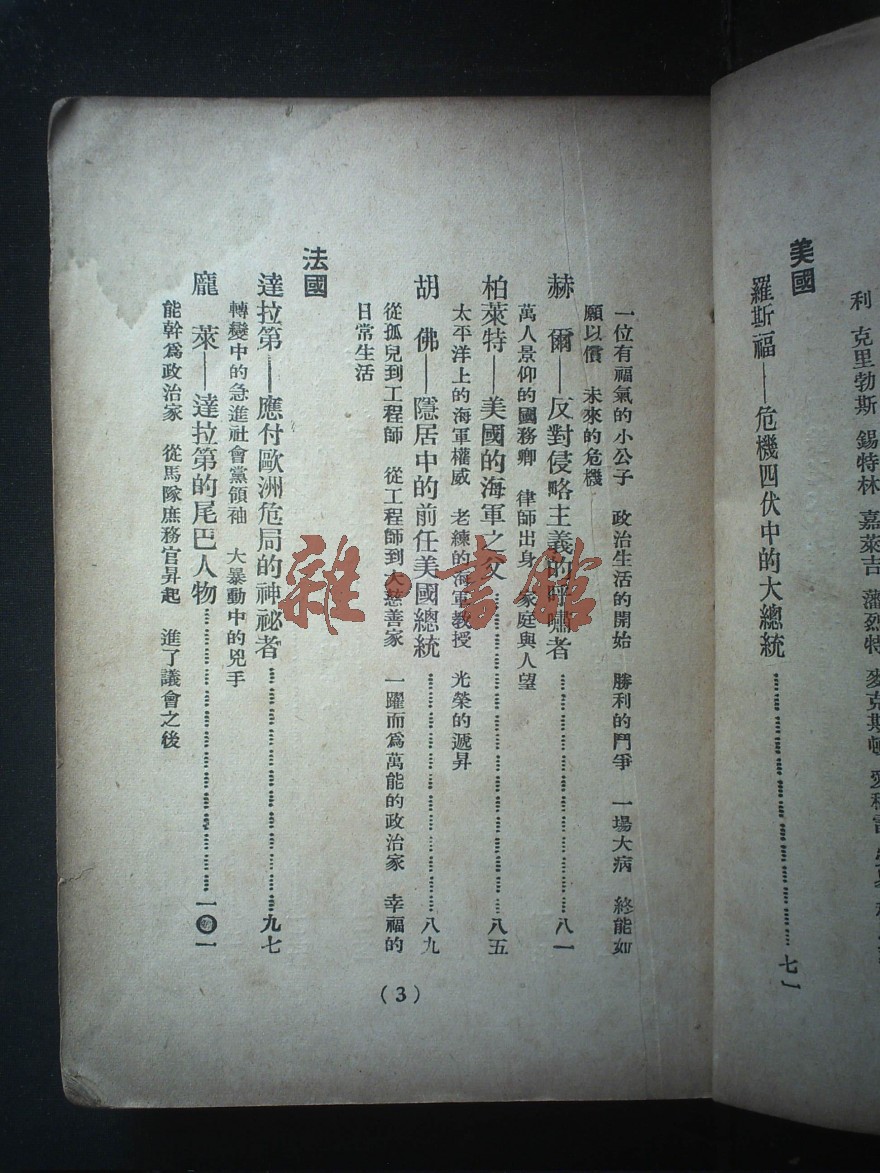 利 克里勃斯 錫特林 嘉萊吉 藩烈特 麥克斯頓
美國
羅斯福——危機四伏中的大總統…………七一
一位有福氣的小公子 政治生活的開始 勝利的鬥爭 一場大病 終能如
願以償 未來的危機
赫 爾——反對侵略主義的呼嘯者…………八一
萬人景仰的國務卿 律師出身 家庭與人望
柏萊特——美國的海軍之父…………八五
太平洋上的海軍權威 老練的海軍教授 光榮的遞昇
胡 佛——隱居中的前任美國總統…………八九
從孤兒到工程師 從工程師到大慈善家 一躍而爲萬能的政治家 幸福的
日常生活
法國
達拉第——應付歐洲危局的神祕者…………九七
轉變中的急進社會黨領袖 大暴動中的兇手
龐 萊——達拉第的尾巴人物…………一〇一
能幹爲政治家 從馬隊庶務官昇起 進了議會之後
(3)
雜·書館